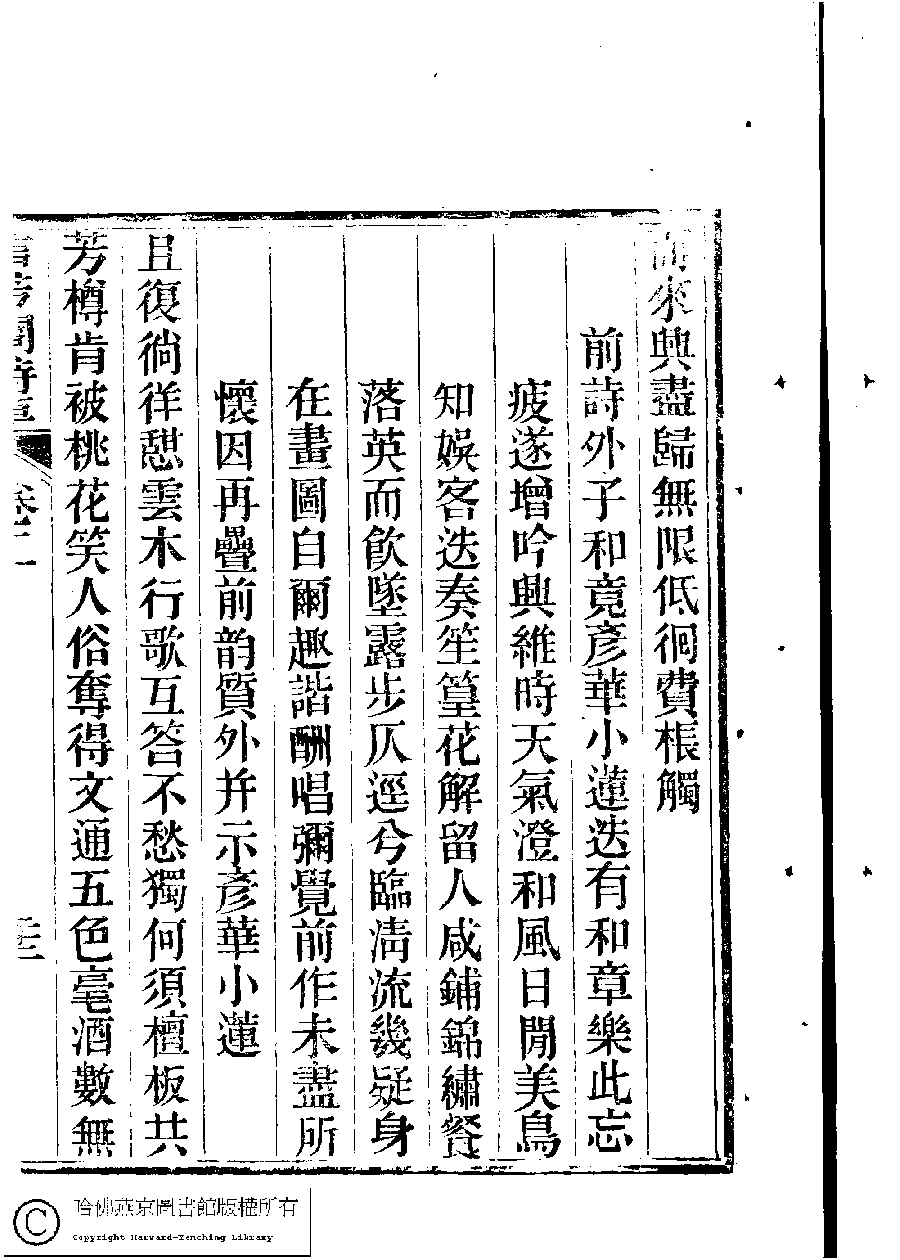 來興盡歸無限低徊費棖觸
前詩外子和竟彥華小蓮迭有和章樂此忘
疲遂增吟興維時天氣澄和風日閒美鳥
知娛客迭奏笙篁花解留人咸鋪錦繡餐
落英而飲墜露步仄逕兮臨淸流幾疑身
在畫圖自爾趣諧酬唱彌覺前作未盡所
懷因再疊前韵質外并示彥華小蓮
且復徜徉憇雲木行歌互答不愁獨何須檀板共
芳樽肯被桃花笑人俗奪得文通五色毫酒數無
卷二
哈佛燕京圖書館版權所有
Copyright Harvard-Yenching Library